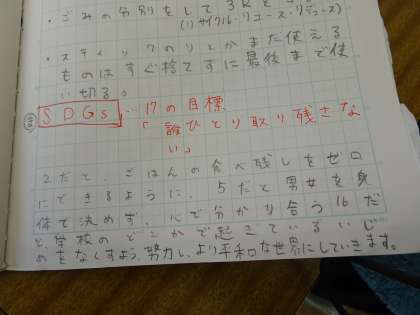 ・ごみの分別をして3Rを
(リサイクル・リユース・リデュース)
・スティックのりとかまだ使える
ものはすぐ捨てずに最後まで使
い切る。
SDGs…17の目標
「誰ひとり取り残さな
い」
2だと、ごはんの食べ残しをゼロ
にできるように、5だと男女を身
体で決めず、心で分かり合う16だ
と、学校のどこかで起きているいじ
めをなくすよう、努力し、より平和な世界にしていきます。